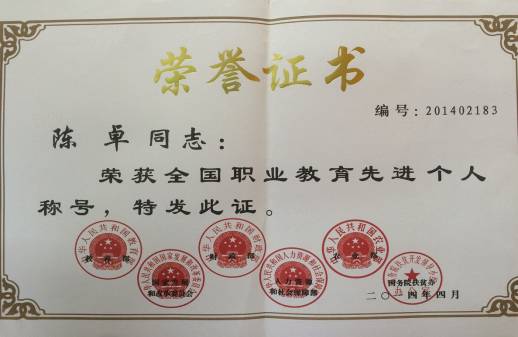 荣誉证书
编号：201402183
陈卓同志：
荣获全国职业教育先进个人
称号，特发此证。
中华人民共和国教育部
教育部
中华人民共和国国家发展和改革委员会
国家发展
和改革委员会
中华人民共和国财政部
财政部
中华人民共和国人力资源和社会保障部
人力资源
和社会保障部
中华人民共和国农业部
农业部
国务院扶贫办
二〇一四年四月